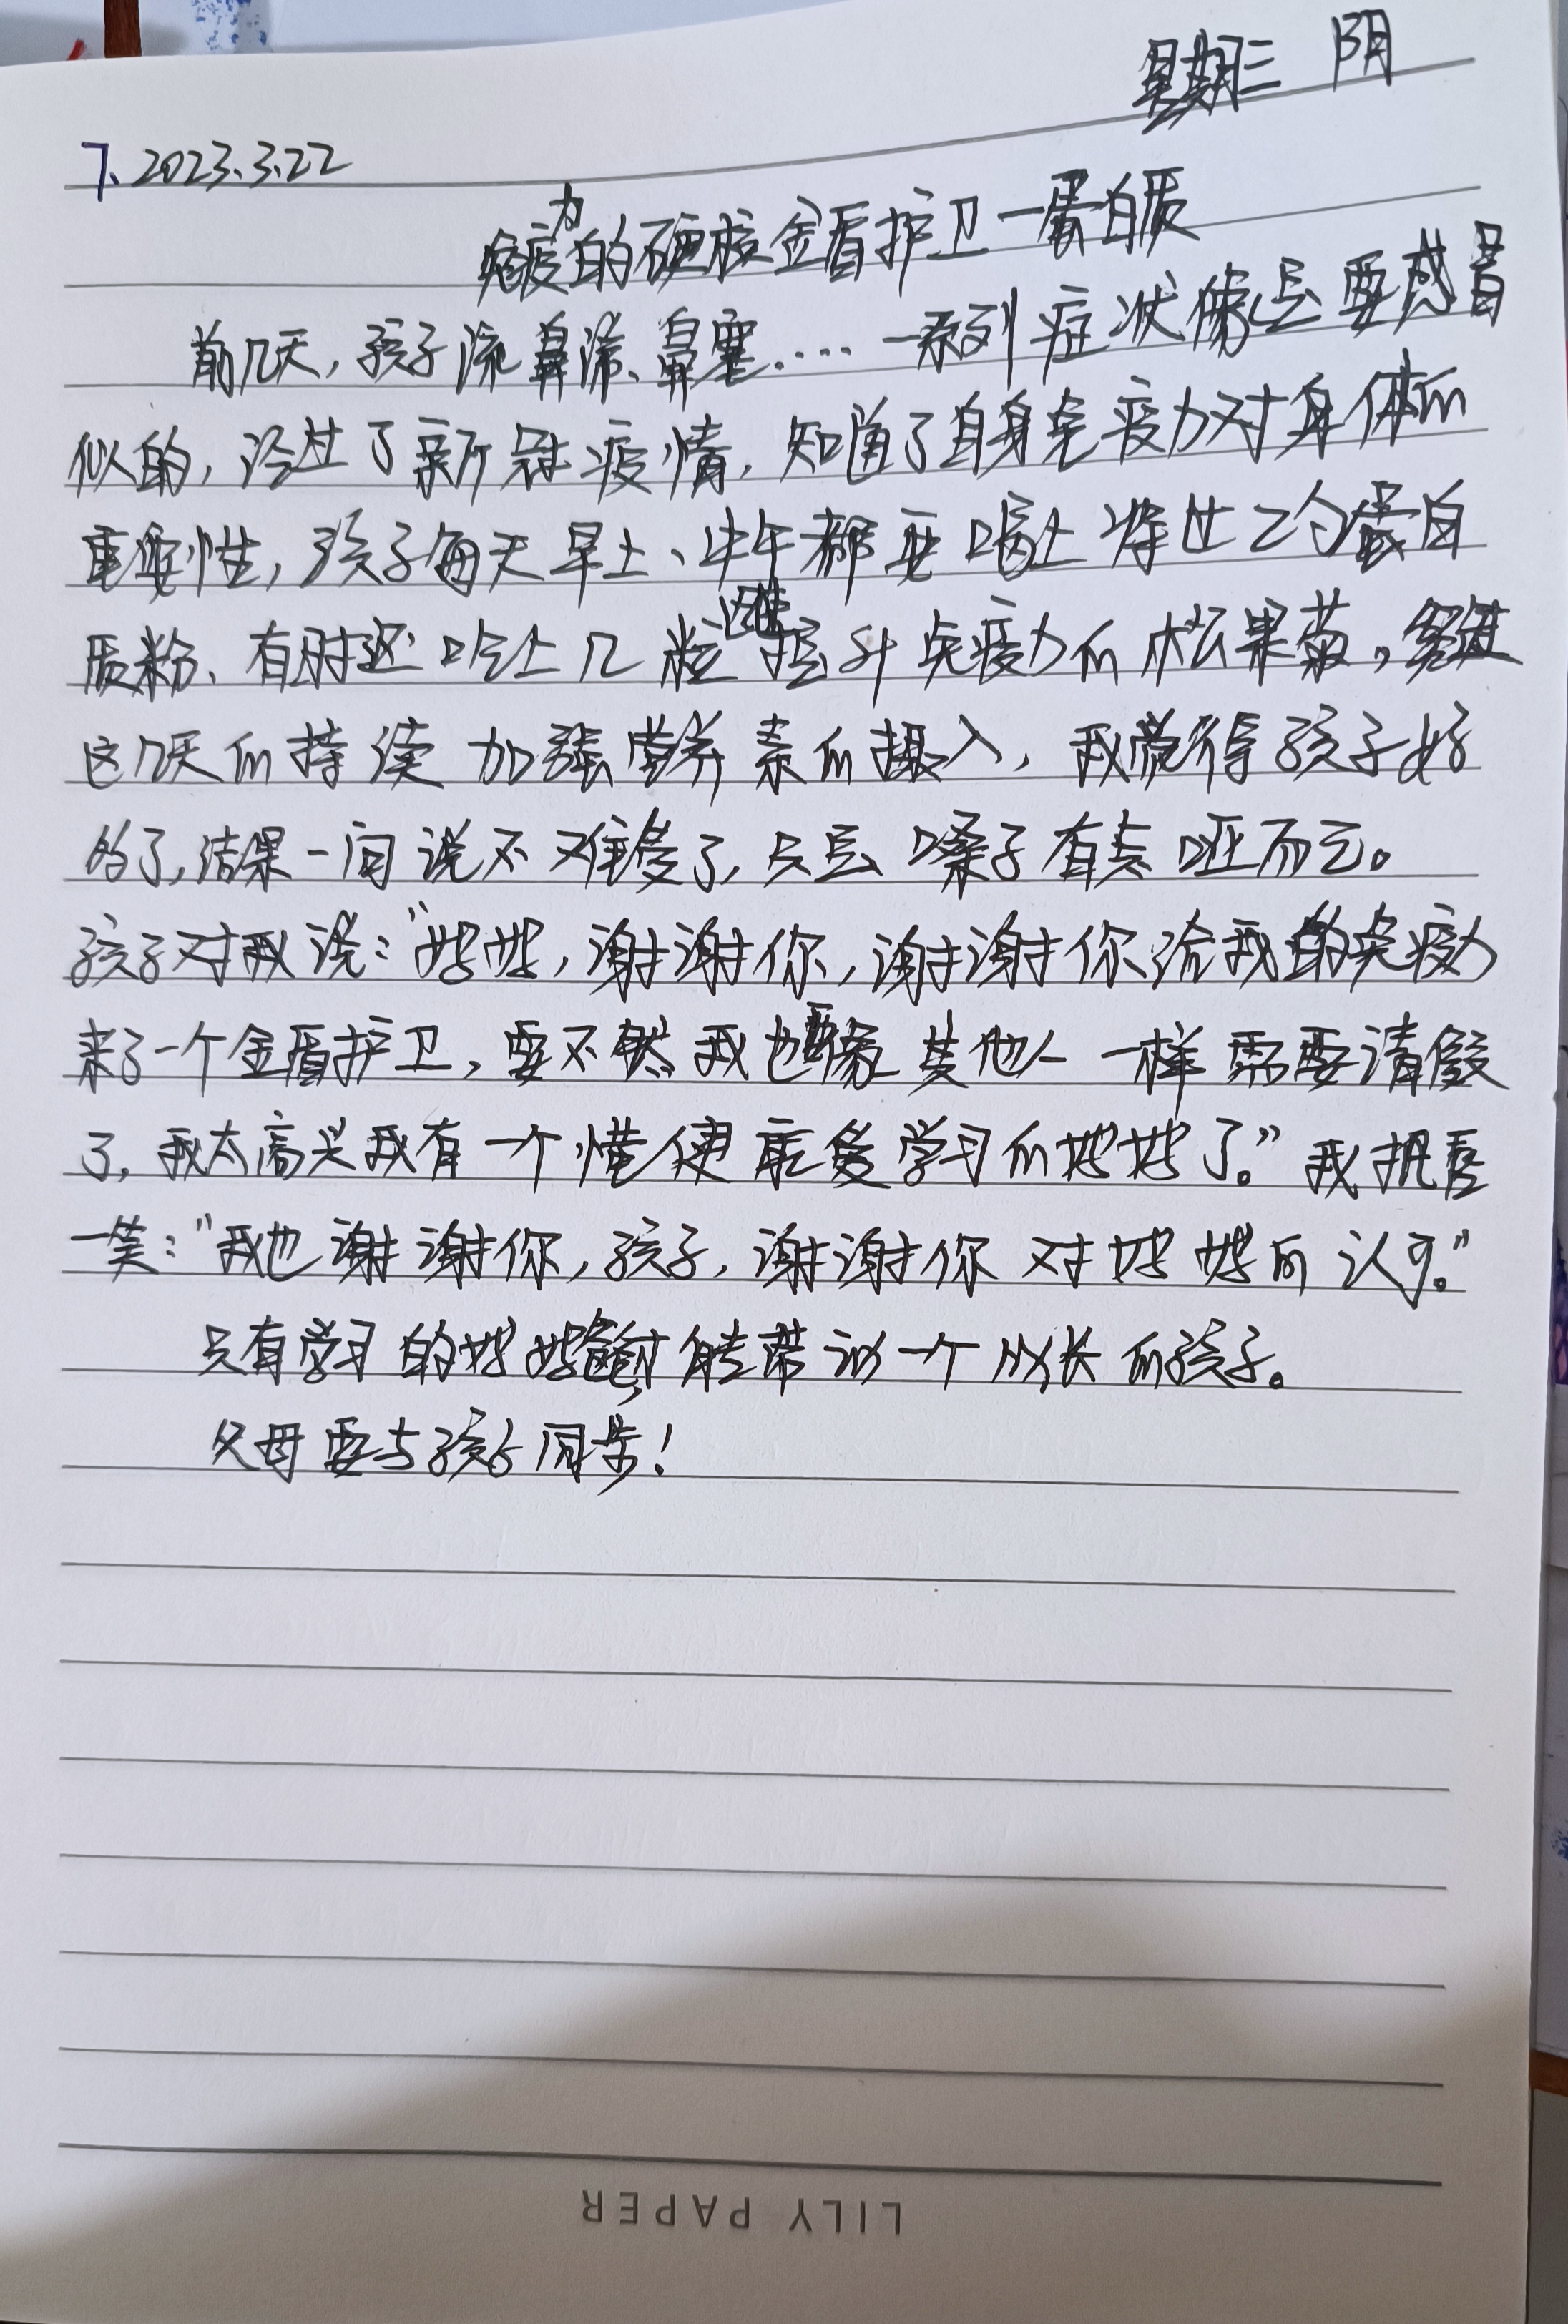 星期三 阴
7、2023.3.22
免疫力的硬核金盾护卫一蛋白质
前几天，孩子流鼻涕、鼻塞....一系列症状像是要感冒
似的，经过了新冠疫情，知道了自身免疫力对身体的
重要性，孩子每天早上、中午都要喝上 2勺蛋白
质粉、有时还吃上几粒提升免疫力的松果菊，经过
这几天的持续加强营养素的摄入，我觉得孩子好
的了，结果一问说不难受了，只是嗓子有点哑而已。
孩子对我说：“妈妈，谢谢你，谢谢你给我的免疫力
来了一个金盾护卫，要不然我也要像其他人一样需要请假
了，我太高兴我有一个懂健康爱学习的妈妈了。”我抿唇
一笑：“我也谢谢你，孩子，谢谢你对妈妈的认可。”
只有学习的妈妈爸才能带动一个成长的孩子。
父母要与孩子同步！
LILY PAPER